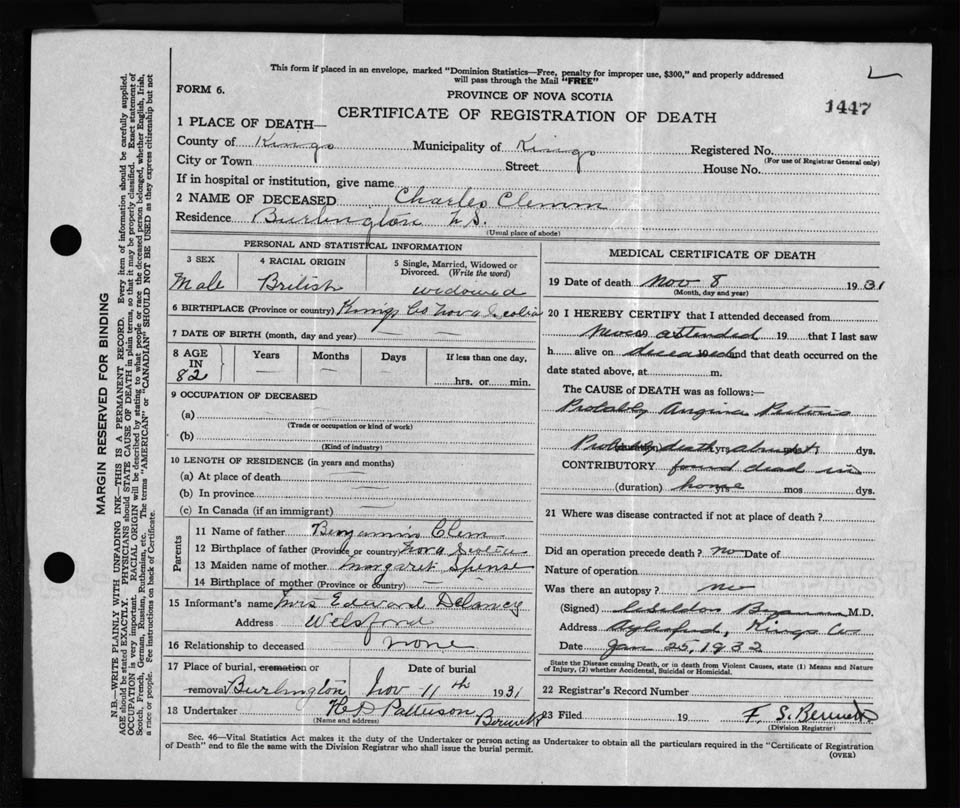 This form if placed in an envelope, marked "Dominion Statistics—Free, penalty for improper use, $300," and properly addressed
will pass through the Mail "FREE"
FORM 6.
PROVINCE OF NOVA SCOTIA
1447
CERTIFICATE OF REGISTRATION OF DEATH
1 PLACE OF DEATH—
County of Kings Municipality of Kings Registered No.
(For use of Registrar General only)
City or Town Street House No.
If in hospital or institution, give name
2 NAME OF DECEASED Charles Clemm
Residence Burlington N.S.
(Usual place of abode)
PERSONAL AND STATISTICAL INFORMATION
3 SEX 4 RACIAL ORIGIN 5 Single, Married, Widowed or
Divorced. (Write the word)
Male British widowed
6 BIRTHPLACE (Province or country) Kings Co Nova Scotia
7 DATE OF BIRTH (month, day and year) —
8 AGE Years Months Days If less than one day,
IN
82 — — — hrs. or min.
9 OCCUPATION OF DECEASED
(a)
(Trade or occupation or kind of work)
(b)
(Kind of industry)
10 LENGTH OF RESIDENCE (in years and months)
(a) At place of death —
(b) In province —
(c) In Canada (if an immigrant) —
Parents
11 Name of father Benjamin Clem
12 Birthplace of father (Province or country) Nova Scotia
13 Maiden name of mother Margaret Spense
14 Birthplace of mother (Province or country) —
15 Informant's name Mrs Edward Delancy
Address Welsford
16 Relationship to deceased none
17 Place of burial, cremation or Date of burial
removal Burlington Nov 11th 1931
18 Undertaker H D Patterson Berwick
(Name and address)
MEDICAL CERTIFICATE OF DEATH
19 Date of death Nov 8 1931
(Month, day and year)
20 I HEREBY CERTIFY that I attended deceased from
Never attended 19 that I last saw
h alive on deceased and that death occurred on
date stated above, at m.
The CAUSE of DEATH was as follows:
Probably Angina Pectoris
Probable death abrupt dys.
CONTRIBUTORY found dead in
(duration) home yrs mos dys.
21 Where was disease contracted if not at place of death?
Did an operation precede death? no Date of
Nature of operation
Was there an autopsy? no
(Signed) M.D.
Address Aylesford, Kings Co
Date Jan 25, 1932
State the Disease causing Death, or in death from Violent Causes, state (1) Means and Nature
of Injury, (2) whether Accidental, Suicidal or Homicidal.
22 Registrar's Record Number
23 Filed 19 F. S.
(Division Registrar)
Sec. 46—Vital Statistics Act makes it the duty of the Undertaker or person acting as Undertaker to obtain all the particulars required in the "Certificate of Registration
of Death" and to file the same with the Division Registrar who shall issue the burial permit.
(OVER)
MARGIN RESERVED FOR BINDING
N.B.—WRITE PLAINLY WITH UNFADING INK—THIS IS A PERMANENT RECORD. Every item of information should be carefully supplied.
AGE should be stated EXACTLY. PHYSICIANS should STATE CAUSE OF DEATH in plain terms, so that it may be properly classified. Exact statement of
OCCUPATION is very important. RACIAL ORIGIN will be described by stating to what people or race the deceased person belonged, whether English, Irish,
Scotch, French, German, Russian, Ruthenian, etc. The terms "AMERICAN" or "CANADIAN" SHOULD NOT BE USED as they express citizenship but not
a race or people. See instructions on back of Certificate.